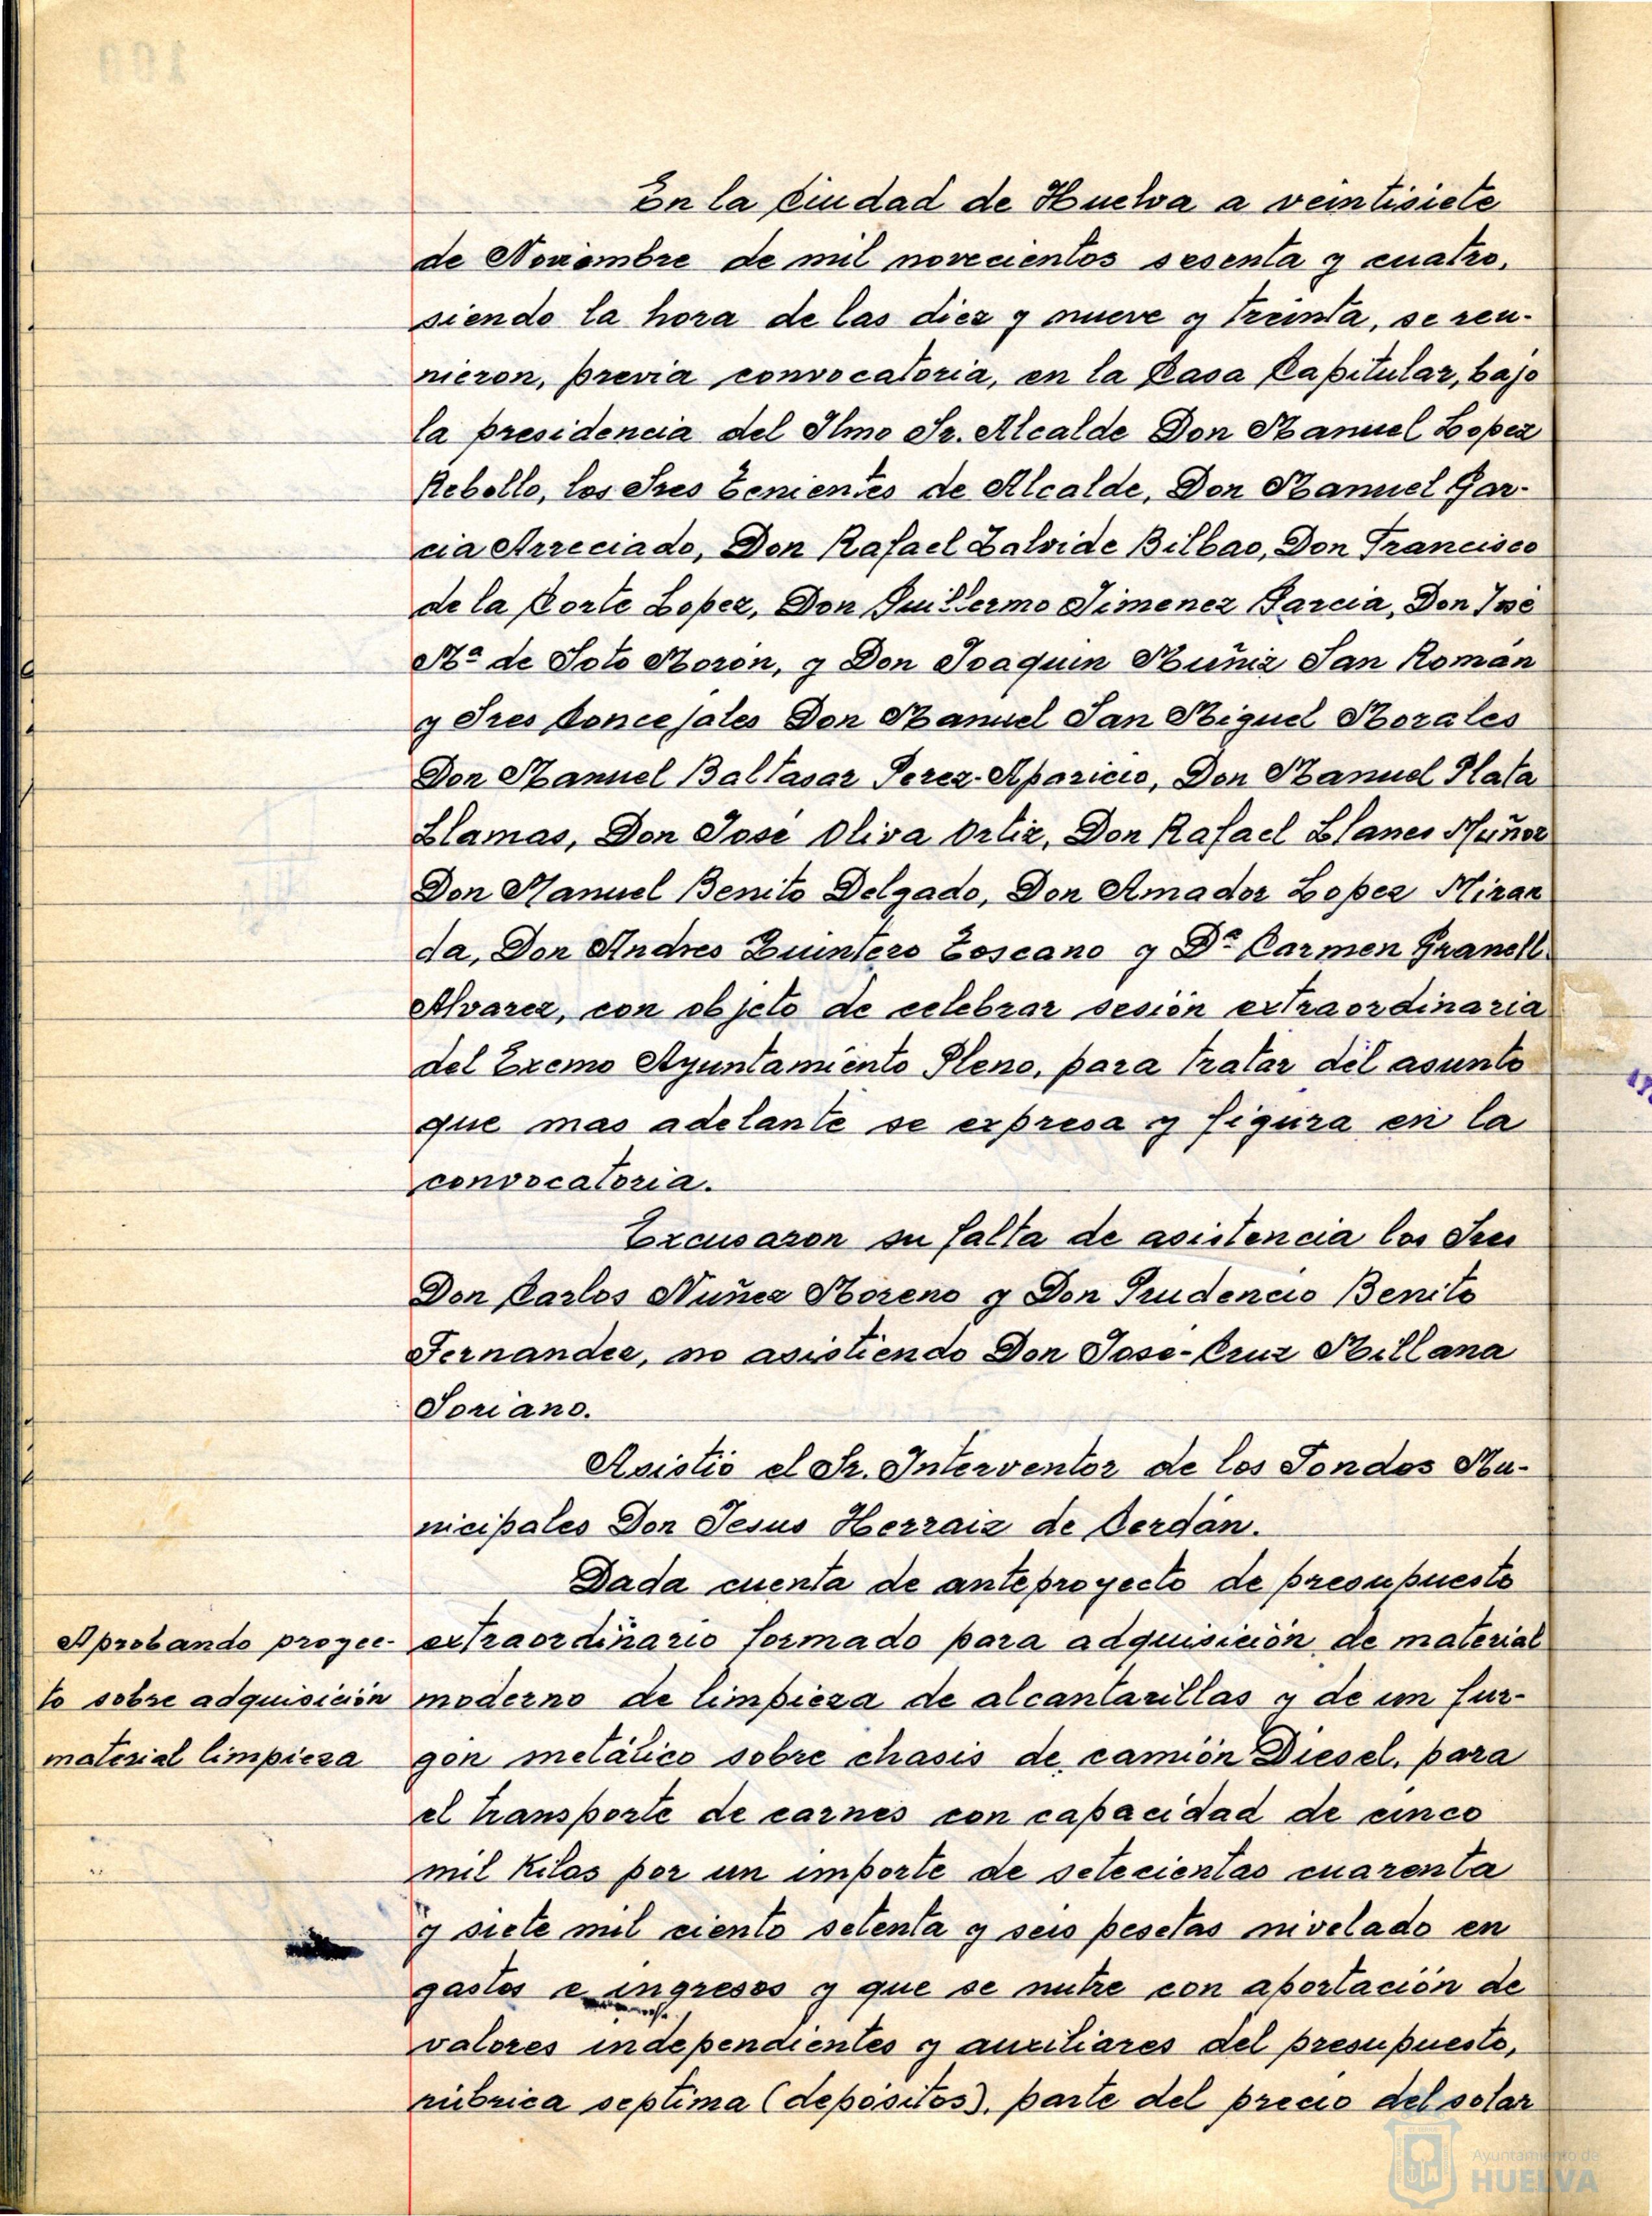 En la Ciudad de Huelva a veintisiete
de Noviembre de mil novecientos sesenta y cuatro,
siendo la hora de las diez y nueve y treinta, se reu-
nieron, previa convocatoria, en la Casa Capitular, bajo
la presidencia del Ilmo Sr. Alcalde Don Manuel Lopez
Rebollo, los Sres Tenientes de Alcalde, Don Manuel Gar-
cia Arreciado, Don Rafael Zalvide Bilbao, Don Francisco
de la Corte Lopez, Don Guillermo Jimenez Garcia, Don José
Mª de Soto Morón, y Don Joaquin Muñiz San Román
y Sres Concejales Don Manuel San Miguel Morales
Don Manuel Baltasar Perez-Aparicio, Don Manuel Plata
Llamas, Don José Oliva Ortiz, Don Rafael Llanes Muñoz
Don Manuel Benito Delgado, Don Amador Lopez Miran
da, Don Andres Quintero Toscano y Dª Carmen Granell
Alvarez, con objeto de celebrar sesión extraordinaria
del Excmo Ayuntamiento Pleno, para tratar del asunto
que mas adelante se expresa y figura en la
convocatoria.
Excusaron su falta de asistencia los Sres
Don Carlos Nuñez Moreno y Don Prudencio Benito
Fernandez, no asistiendo Don José-Cruz Millana
Soriano.
Asistió el Sr. Interventor de los Fondos Mu-
nicipales Don Jesus Herraiz de Cerdán.
Dada cuenta de anteproyecto de presupuesto
Aprobando proyec-
to sobre adquisición
material limpieza
extraordinario formado para adquisición de material
moderno de limpieza de alcantarillas y de un fur-
gón metálico sobre chasis de camión Diesel, para
el transporte de carnes con capacidad de cinco
mil Kilos por un importe de setecientas cuarenta
y siete mil ciento setenta y seis pesetas nivelado en
gastos e ingresos y que se nutre con aportación de
valores independientes y auxiliares del presupuesto,
rúbrica septima (depósitos), parte del precio del solar
Ayuntamiento de
HUELVA